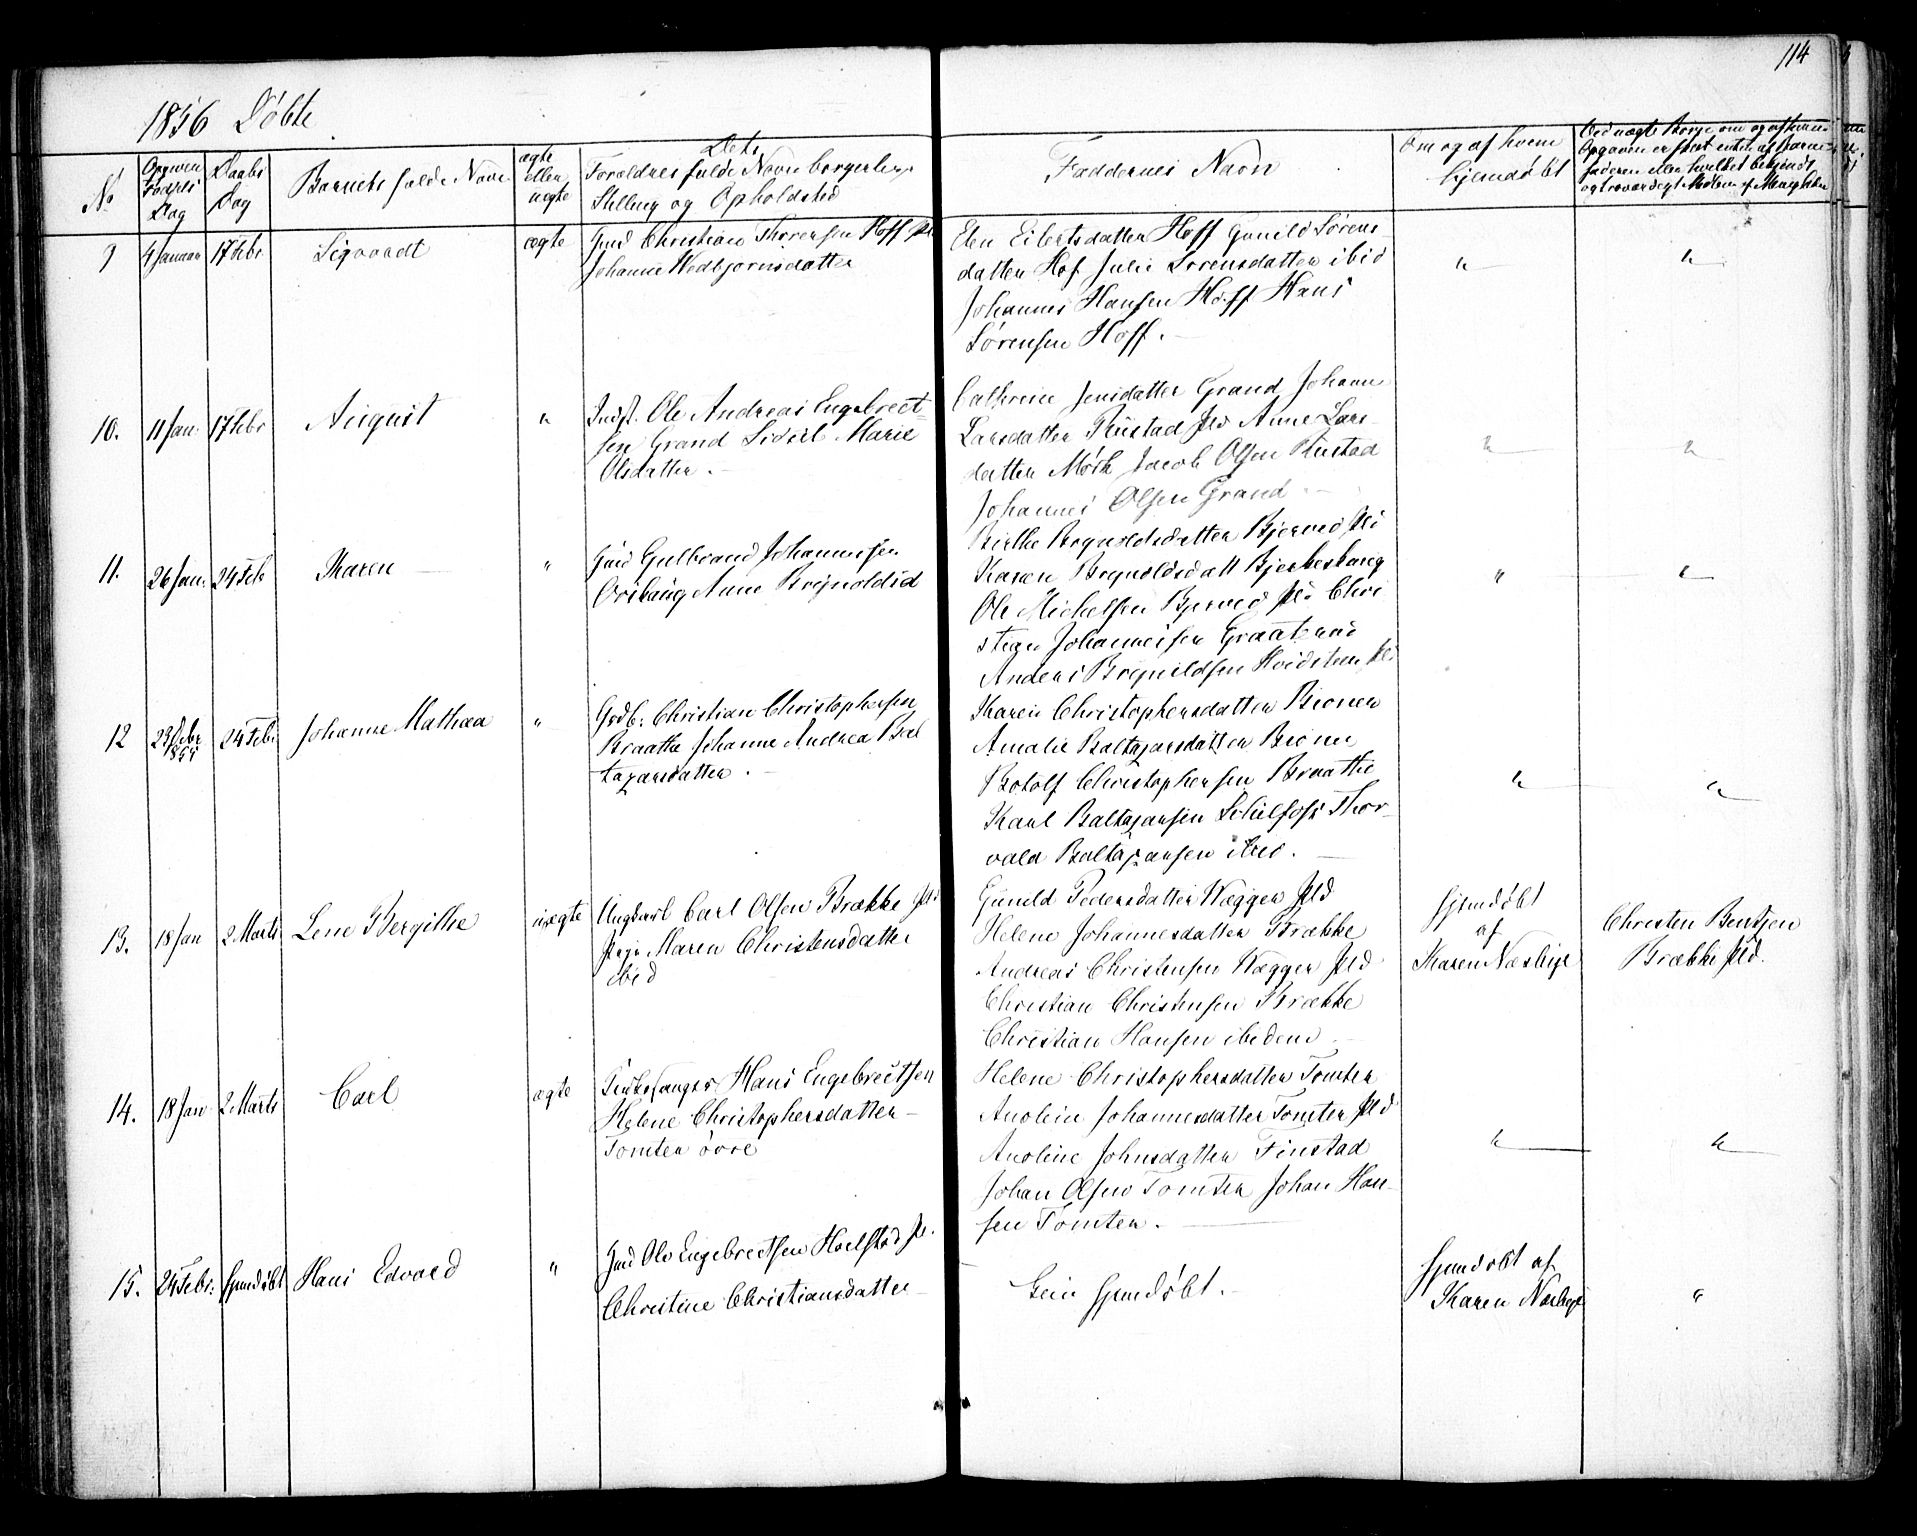 114
1856 Døbte
No
Opgiven Fødsels Dag
Daabs Dag
Barnets fulde Navn
ægte eller uægte
Dets
Forældres fulde Navn borgerlige
Stilling og Opholdsted
Faddernes Navn
Om og af hvem
hjemdøbt
9 4 Januar 17 Febr Sigvardt ægte Gmd Christian Thorensen Hoff
Johanne Wedbjørnsdatter
Elen Eilertsdatter Hoff Gunild Sørens-
datter Hof Julie Sørensdatter ibid
Johannes Hansen Hoff Hans
Sørensen Hoff.
10. 11 Jan. 17 Febr August " Indst. Ole Andreas Engebrect-
sen Grand Marie
Olsdatter.
Cathrine Jensdatter Grand Johanne
Larsdatter Rustad Anne Lars-
datter Mørk Jacob Olsen Rustad
Johannes Olsen Grand
11. 26 Jan. 24 Feb Karen " Gmd Gulbrand Johannesen
Anne Brynoldsd
Birthe Brynoldsdatter Bjerved
Karen Brynoldsdatt
Ole Michelsen Bjerved Chri
stian Johannesen
Anders Brynildsen Hvidsteen
12 23 Debr 1855 24 Febr Johanne Mathea " Grdb. Christian Christophersen
Braathe Johanne Andrea Bal
tazarsdatter.
Karen Christophersdatter
Amalie Baltazarsdatter
Botolf Christophersen Braathe
Karl Baltazarsen Thor-
vald Baltazarsen ibid.
13. 18 Jan 2 Marts Lene Bergithe uægte Ungkarl Carl Olsen Brække
Pige Maren Christensdatter
ibid
Gunild Pedersdatter Vegger Pld
Helene Johannesdatter Brække
Andreas Christensen Vegger Pld
Christian Christensen Brække
Christian Hansen ibidem
hjemdøbt
af
Karen Næsbye
Christen Bentsen
Brække Pld.
14. 18 Jan 2 Marts Carl ægte Hans Engebrectsen
Helene Christophersdatter
Tomter øvre
Helene Christophersdatter Tomter
Anolein Johannesdatter Tomter Pld
Anoline Johnsdatter Finstad
Johan Olsen Tomter Johan Han-
sen Tomter.
15. 24 Febr. hjemdøbt Hans Edvard " Gmd Ole Engebrectsen Hoelstad
Christine Christiansdatter
hjemdøbt.
hjemdøbt af
Karen Næsbye